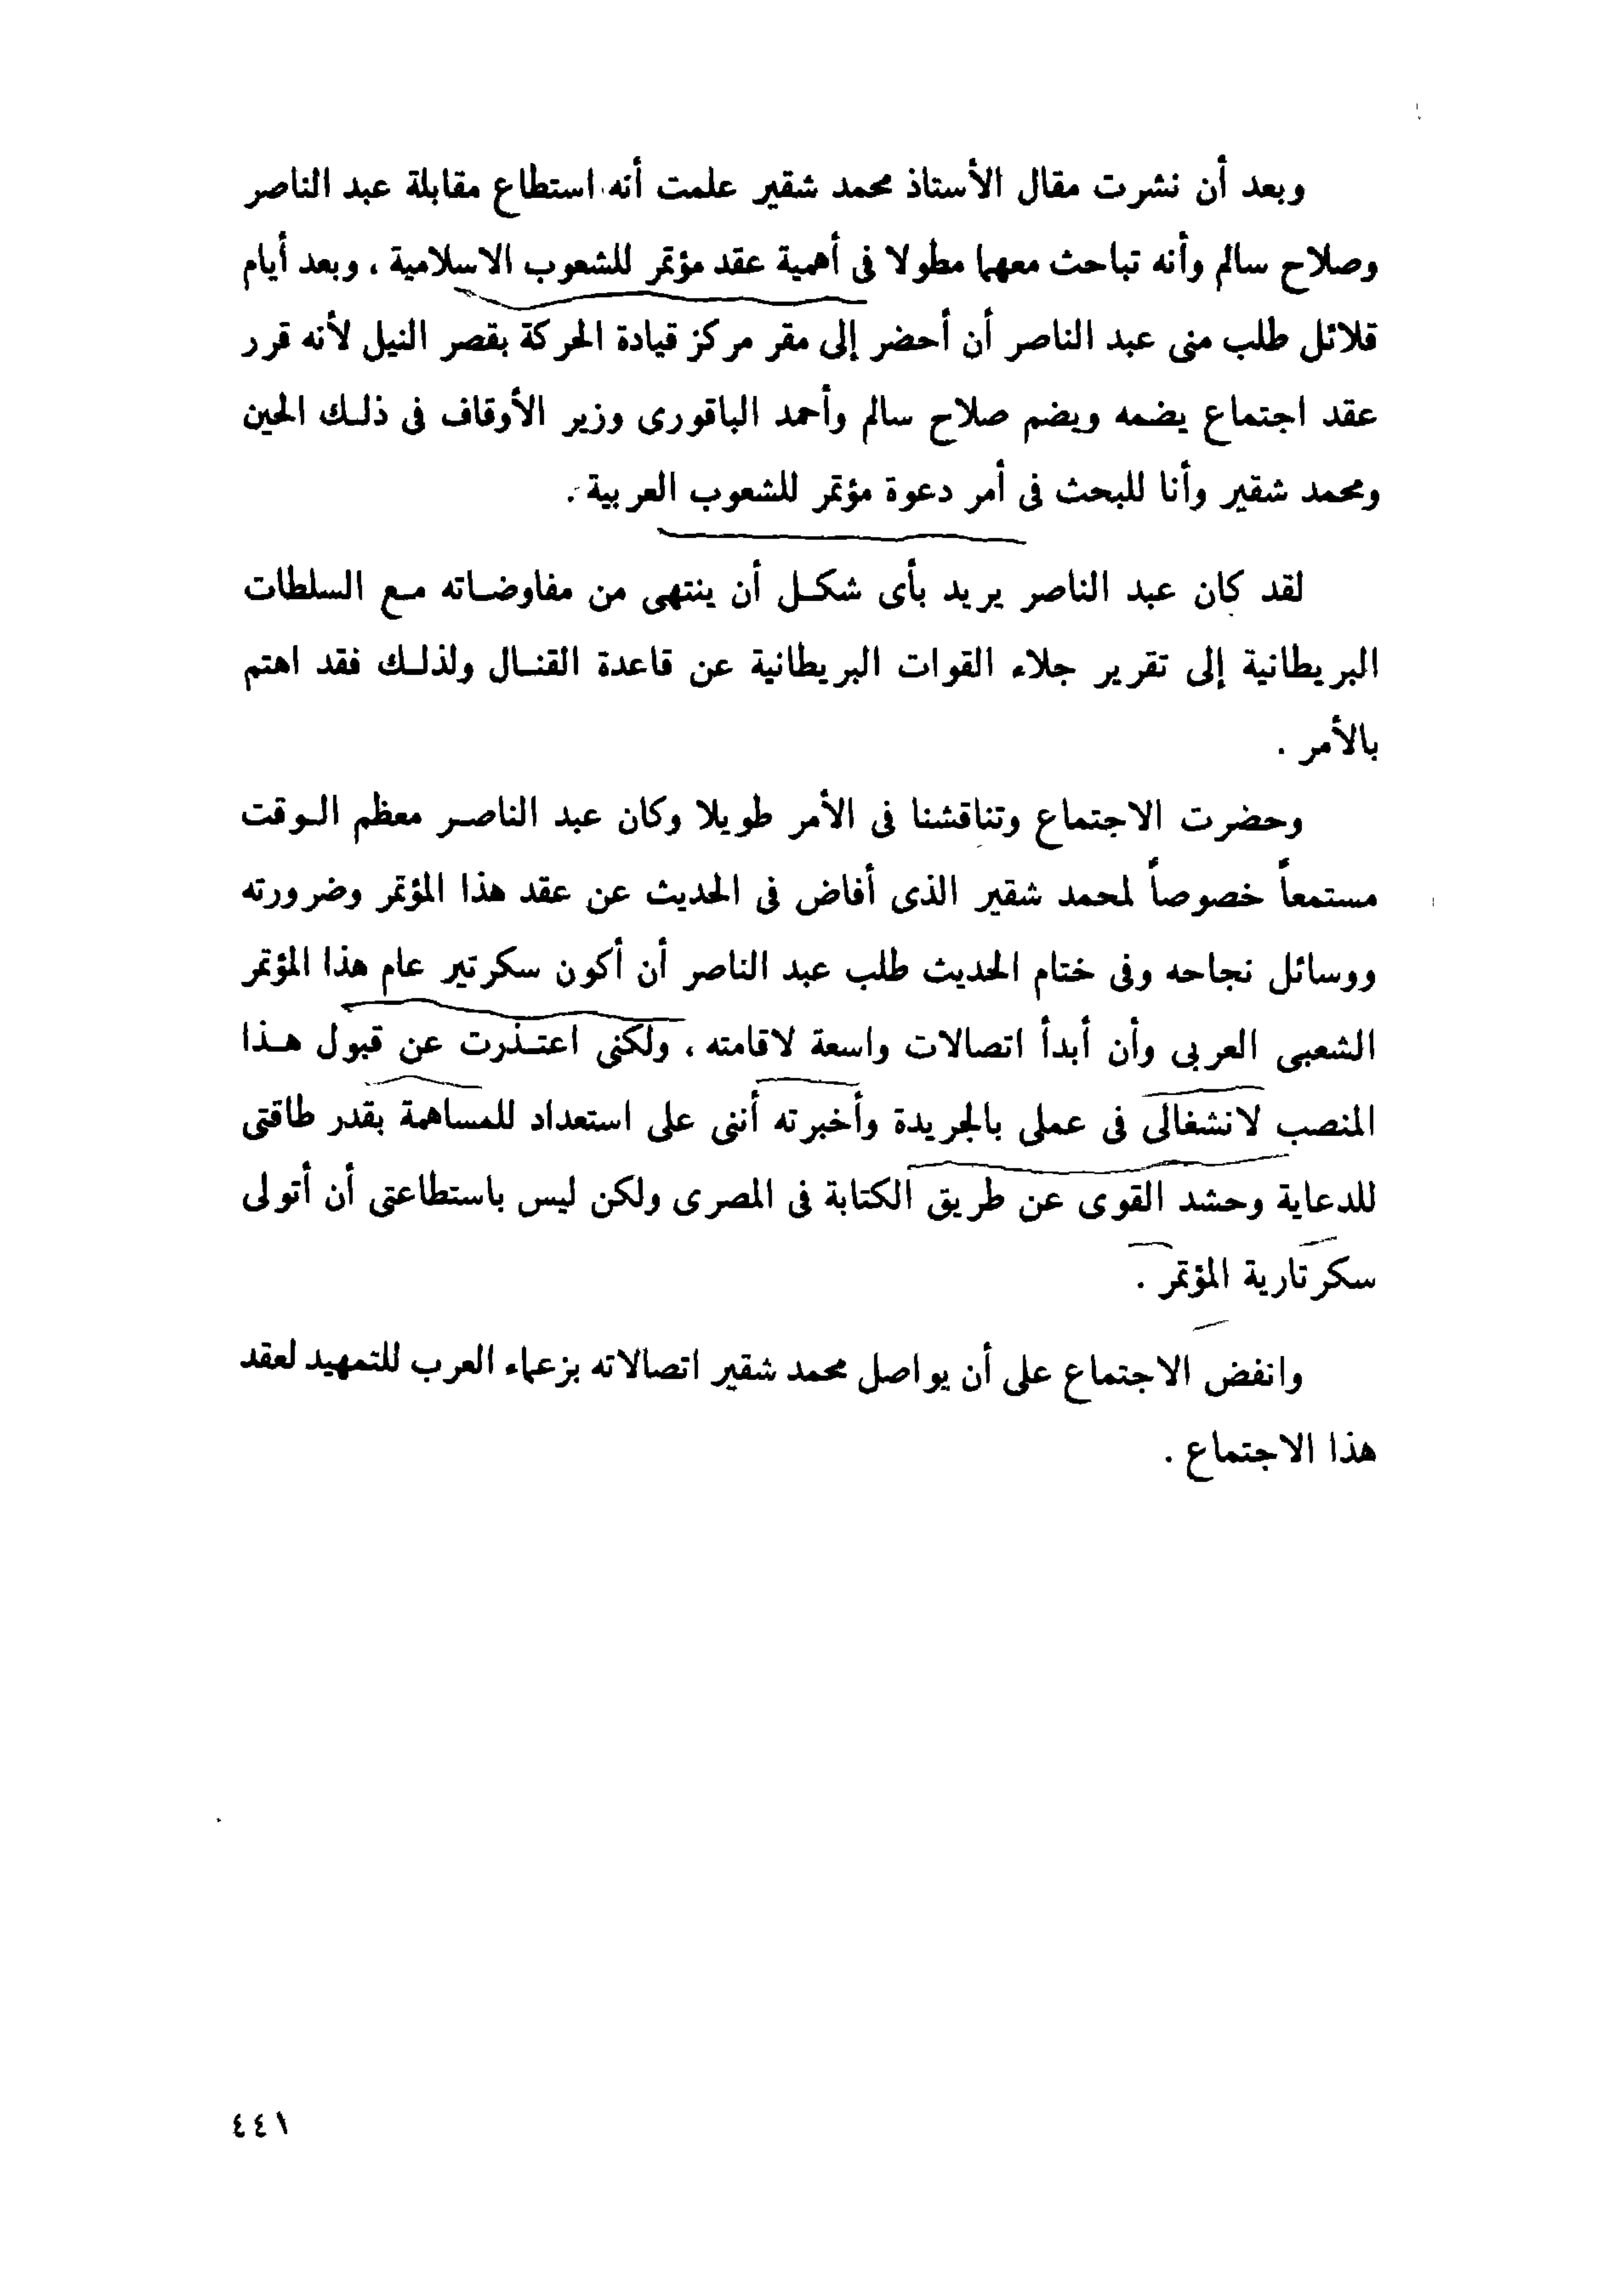 وبعد أن نشرت مقال الأستاذ محمد شقير علمت أنه استطاع مقابلة عبد الناصر
وصلاح سالم وأنه تباحث معهما مطولا فى أهمية عقد مؤتمر للشعوب الاسلامية ، وبعد أيام
قلائل طلب منى عبد الناصر أن أحضر إلى مقر مركز قيادة الحركة بقصر النيل لأنه قرر
عقد اجتماع يضمه ويضم صلاح سالم وأحمد الباقورى وزير الأوقاف فى ذلك الحين
ومحمد شقير وأنا للبحث فى أمر دعوة مؤتمر للشعوب العربية .
لقد كان عبد الناصر يريد بأى شكل أن ينتهى من مفاوضاته مع السلطات
البريطانية إلى تقرير جلاء القوات البريطانية عن قاعدة القنال ولذلك فقد اهتم
بالأمر .
وحضرت الاجتماع وتناقشنا فى الأمر طويلا وكان عبد الناصر معظم الوقت
مستمعاً خصوصاً لمحمد شقير الذى أفاض فى الحديث عن عقد هذا المؤتمر وضرورته
ووسائل نجاحه وفى ختام الحديث طلب عبد الناصر أن أكون سكرتير عام هذا المؤتمر
الشعبى العربى وأن أبدأ اتصالات واسعة لاقامته ، ولكنى اعتذرت عن قبول هذا
المنصب لانشغالى فى عملى بالجريدة وأخبرته أننى على استعداد للمساهمة بقدر طاقتى
للدعاية وحشد القوى عن طريق الكتابة فى المصرى ولكن ليس باستطاعتى أن أتولى
سكرتارية المؤتمر .
وانفض الاجتماع على أن يواصل محمد شقير اتصالاته بزعماء العرب للتمهيد لعقد
هذا الاجتماع .
٤٤١